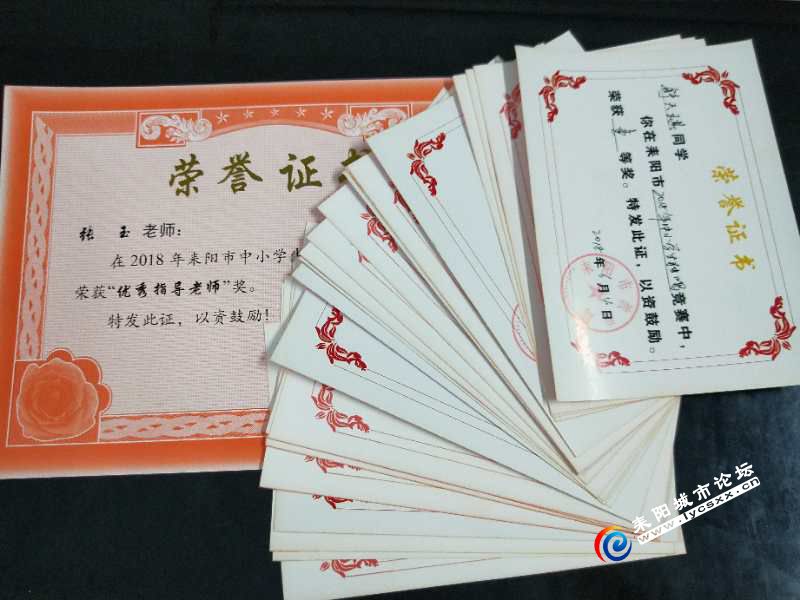 荣誉证
张 玉 老师：
在2018年耒阳市中小学
荣获“优秀指导老师”奖。
特发此证，以资鼓励！
荣誉证书
同学
你在耒阳市2018年中小学 竞赛中，
荣获 壹 等奖。特发此证，以资鼓励。
2018年 月 日
耒阳城市论坛
www.lycsxx.cn